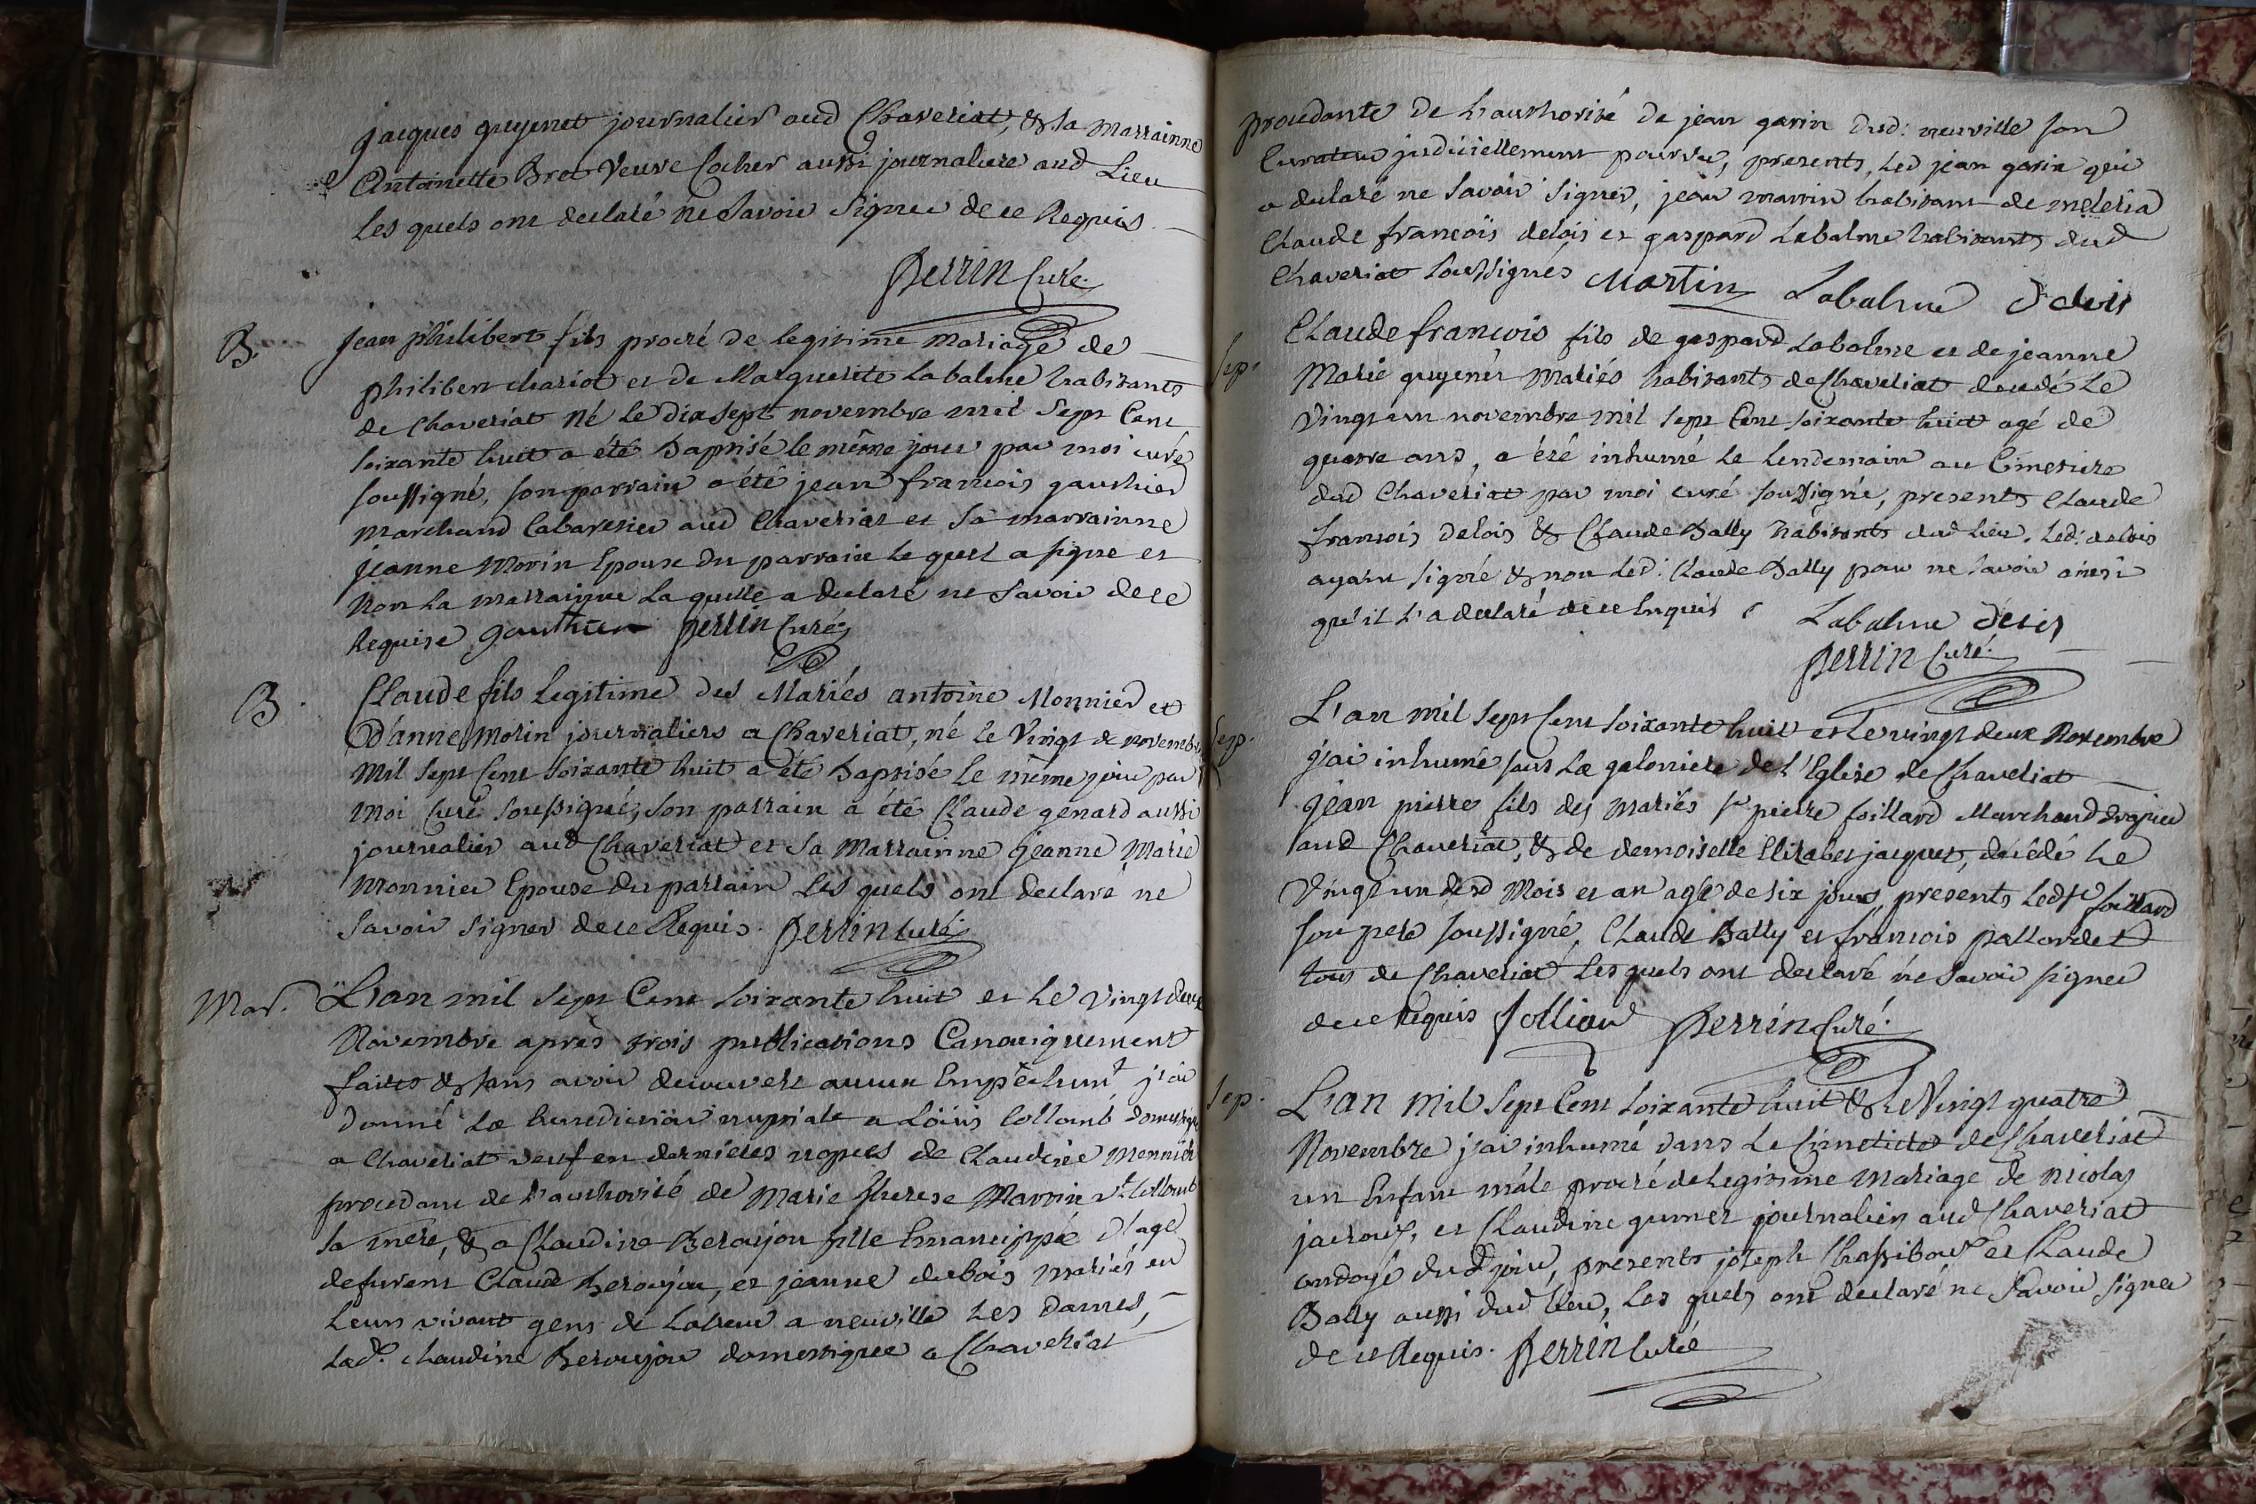 jacques guyenet journalier aud Chaveriat, & la marrainne
Antoinette Bret Veuve Cocher aussi journaliere aud Lieu
les quels ont declaré ne Savoir Signer de ce Requis.
Perrin Curé.
B. jean philibert fils procréé de legitime mariage de
philibert chariot et de Marguerite Labalme habitants
de Chaveriat né le dix sept novembre mil Sept Cent
soixante huit a été baptisé le même jour par moi curé
soussigné, son parrain a été jean francois gauthier
marchand Cabaretier aud Chaveriat et sa marrainne
jeanne Morin Epouse du parrain le quel a signe et
Non la marrainne la quelle a declaré ne Savoir de ce
Requise gauthier perrin Curé.
B. Claude fils legitime des Mariés antoine Monnier et
d'anne Morin journaliers a Chaveriat, né le Vingt de novembre
mil sept Cent soixante huit a été baptisé le même jour par
moi Curé soussigné, son parrain a été Claude genard aussi
journalier aud Chaveriat et sa marrainne jeanne Marie
monnier Epouse du parrain les quels ont declaré ne
savoir signer de ce Requis. perrin curé
Mar. L'an mil sept Cent soixante huit et le vingt deux
Novembre après trois publications Canoniquement
faites & sans avoir decouvert aucun Empechemt j'ai
donné la benediction nuptiale a Loüis Colloub domestique
a Chaveriat veuf en dernieres nopces de Claudine Monnier
procedant de l'authorité de Marie therese Martin ve Colloub
sa mère, & a Claudine Beroujon fille Emancippée d'age
defurent Claude Beroujon, et jeanne dubois mariés en
leurs vivant gens de Labeur a neuville les dames,
lade. claudine Beroujon domestique a Chaveriat
procedante de l'authorité de jean garin dud: neuville son
Curateur judiciellement pourvu, presents, led jean garin qui
a declaré ne savoir signer, jean martin habitant de meleria
Claude françois delois et gaspard Labalme habitants dud
Chaveriat soussignés Martin Labalme delois
Sep. Claude francois fils de gaspard Labalme et de jeanne
Marie guyenet Mariés habitants de Chaveriat decedé le
Vingt un novembre mil sept Cent soixante huit agé de
quatre ans, a été inhumé le lendemain au Cimetiere
dud Chaveriat par moi curé soussigné, presents Claude
francois delois & Claude Bally habitants dud lieu, led: delois
ayant signé & non led: Claude Bally pour ne savoir ainsi
qu'il l'a declaré de ce Enquis Labalme delois
perrin Curé.
Sep. L'an mil sept Cent soixante huit et le vingt deux Novembre
j'ai inhumé sous la galoniere de l'Eglise de Chaveriat
jean pierre fils des mariés sr pierre foillard Marchand drapier
aud Chaveriat, & de demoiselle Elizabet jacquet, decedé le
Vingt un desd Mois et an agé de six jours, presents led sr foillard
son pere soussigné, Claude Bally et francois pallordet
tous de Chaveriat les quels ont declaré ne savoir signer
de ce Requis folliard perrin Curé.
Sep. L'an mil Sept Cent soixante huit & le Vingt quatre
Novembre j'ai inhumé dans le Cimetiere de Chaveriat
un Enfant mâle procréé de legitime mariage de nicolas
jacroux, et Claudine gumet journalier aud Chaveriat
ondoyé dud jour, presents joseph Chassiboux et Claude
Bally aussi dud lieu, les quels ont declaré ne savoir signer
de ce Requis. perrin curé